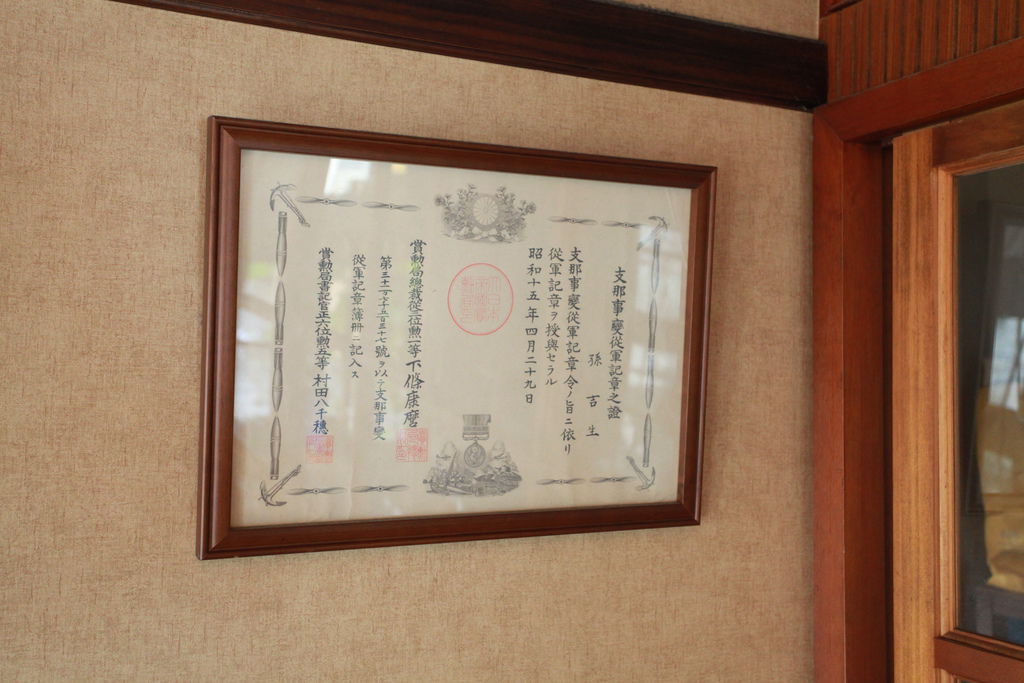 支那事變從軍記章之證
孫吉生
支那事變從軍記章令ノ旨ニ依リ
從軍記章ヲ授與セラル
昭和十五年四月二十九日
賞勲局總裁從三位勲一等下條康麿
號ヲ以テ支那事變
從軍記章簿册ニ記入ス
賞勲局書記官正六位勲五等村田八千穗